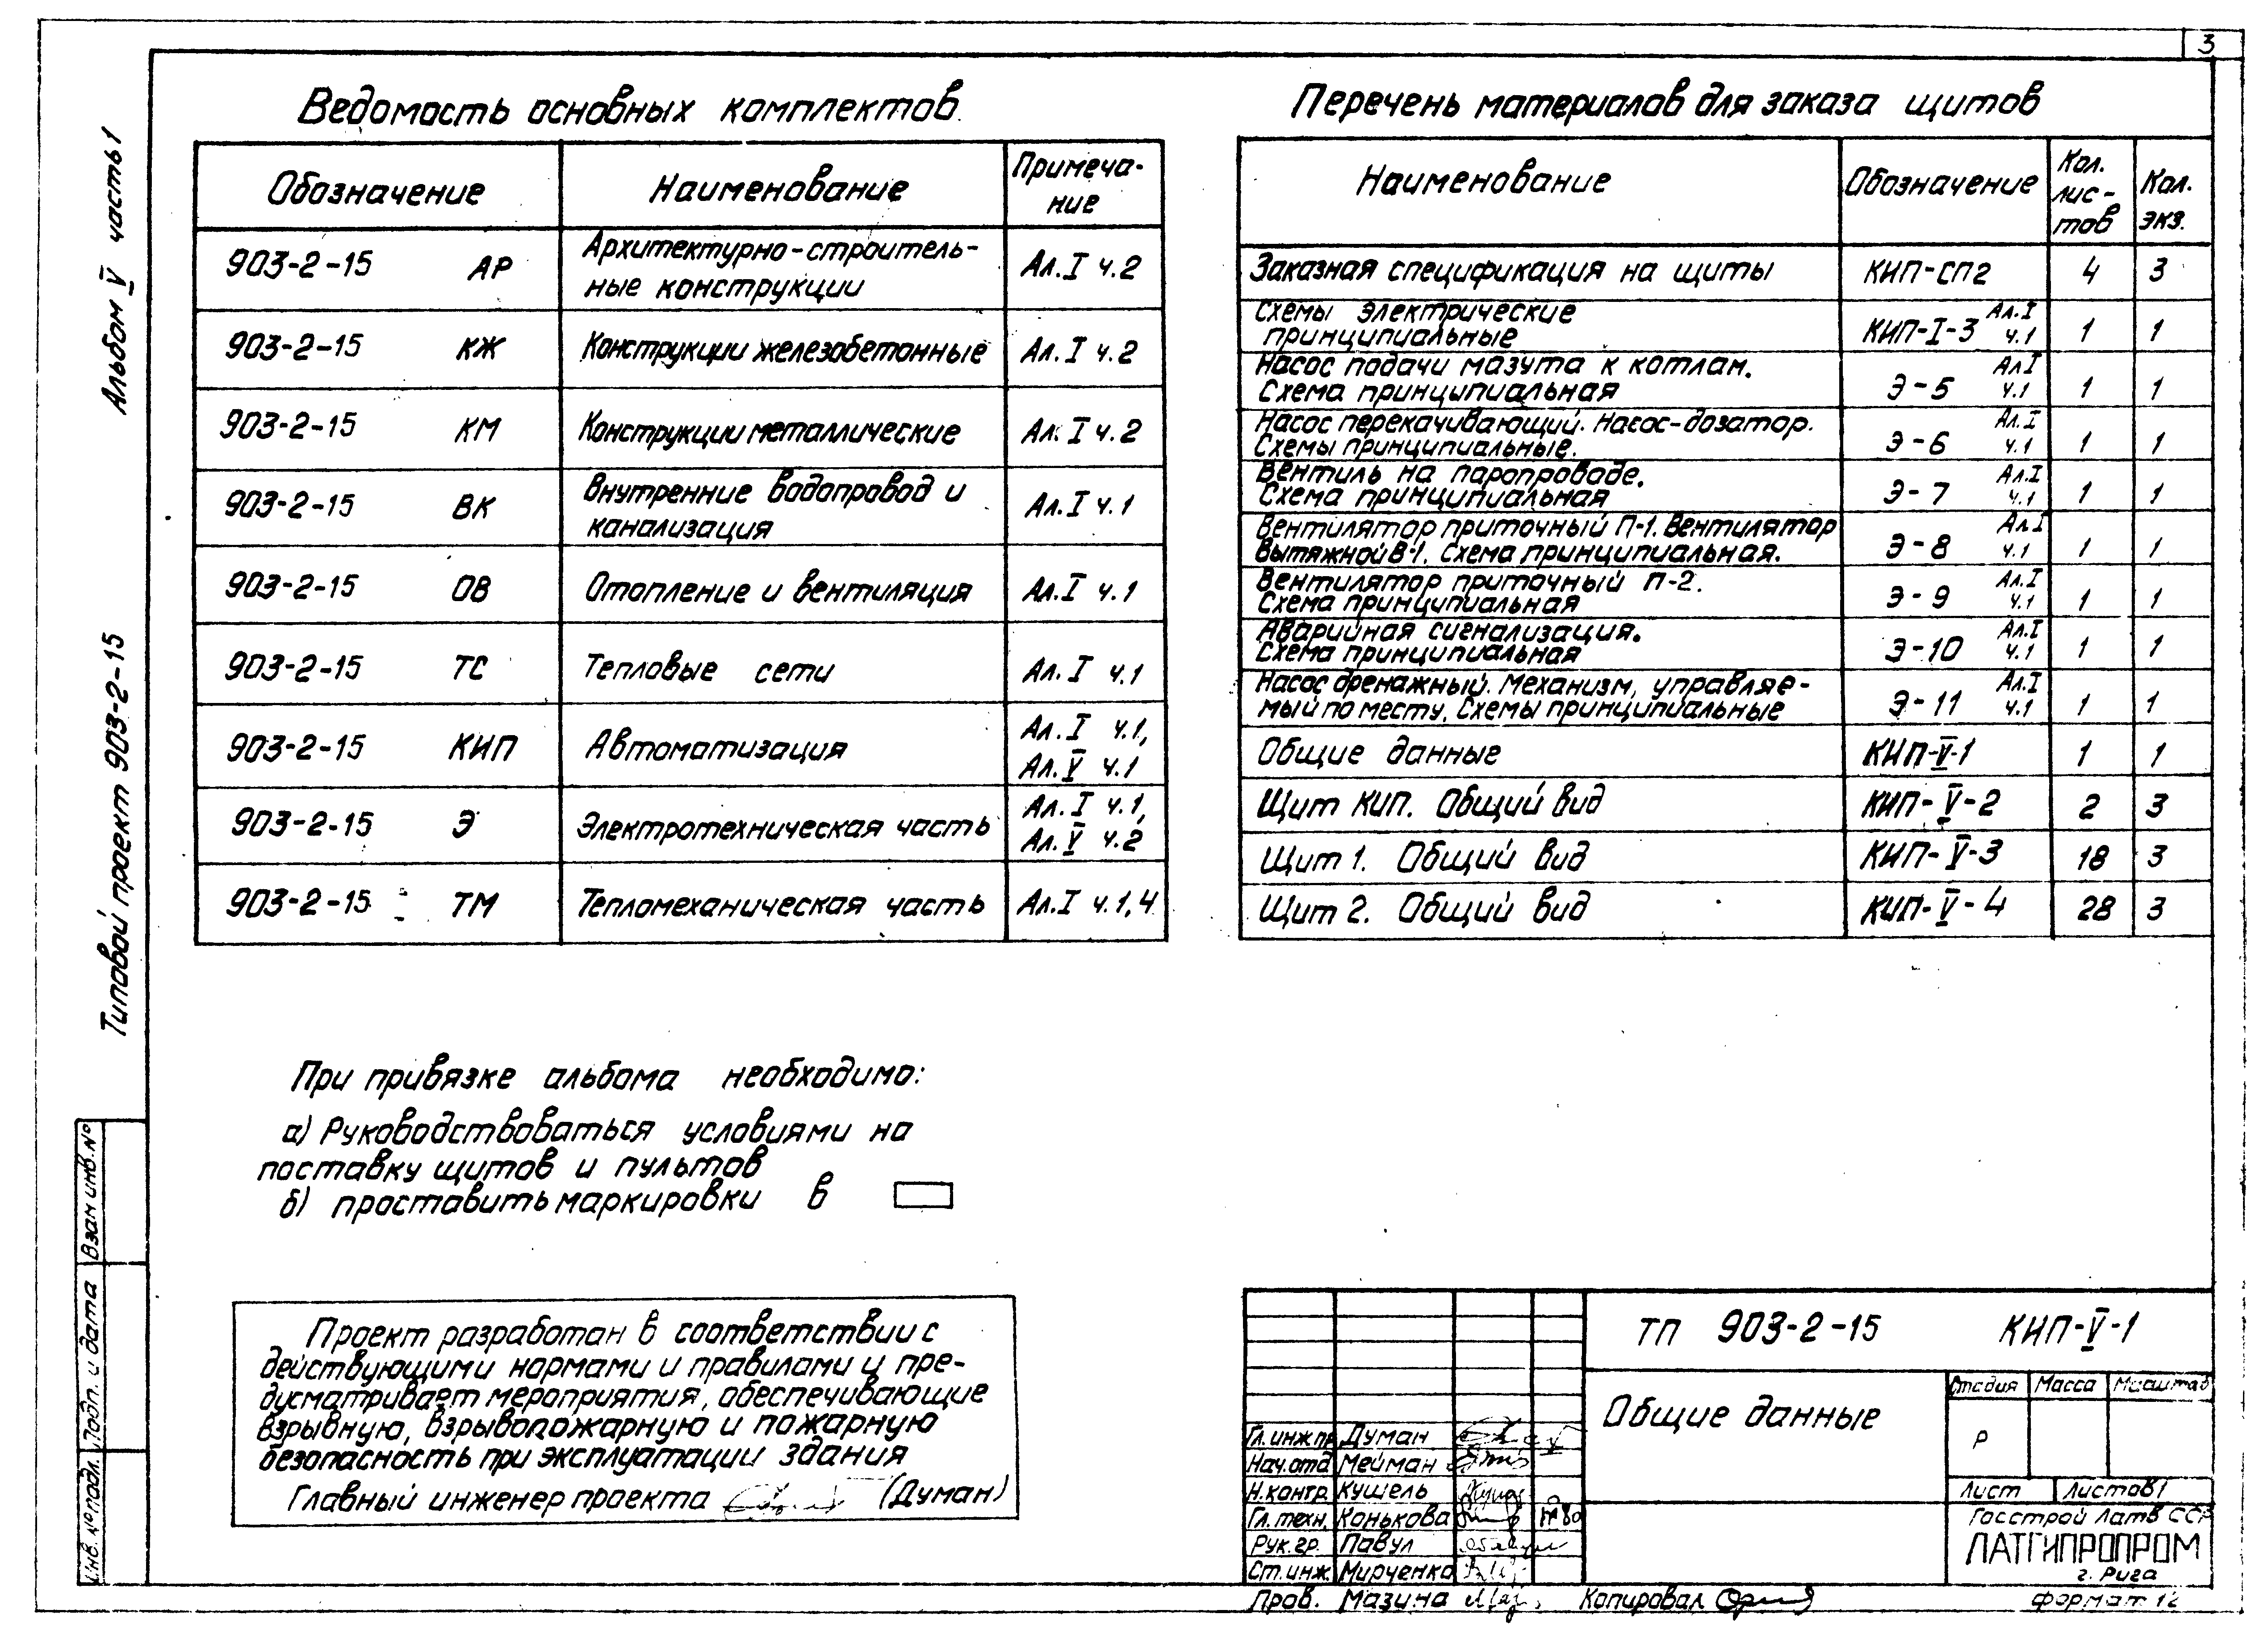 3
Альбом V часть 1
Типовой проект 903-2-15
Ведомость основных комплектов.
Обозначение Наименование Примеча-
ние
903-2-15 АР Архитектурно-строитель-
ные конструкции Ал. I ч.2
903-2-15 КЖ Конструкции железобетонные Ал. I ч.2
903-2-15 КМ Конструкции металлические Ал. I ч.2
903-2-15 ВК Внутренние водопровод и
канализация Ал. I ч.1
903-2-15 ОВ Отопление и вентиляция Ал. I ч.1
903-2-15 ТС Тепловые сети Ал. I ч.1
903-2-15 КИП Автоматизация Ал. I ч.1,
Ал. V ч.1
903-2-15 Э Электротехническая часть Ал. I ч.1,
Ал. V ч.2
903-2-15 ТМ Тепломеханическая часть Ал. I ч.1,4
Перечень материалов для заказа щитов
Наименование Обозначение Кол.
лис-
тов Кол.
экз.
Заказная спецификация на щиты КИП-СП2 4 3
Схемы электрические
принципиальные КИП-I-3 Ал. I ч.1 1 1
Насос подачи мазута к котлам.
Схема принципиальная Э-5 Ал I ч.1 1 1
Насос перекачивающий. Насос-дозатор.
Схемы принципиальные. Э-6 Ал. I ч.1 1 1
Вентиль на паропроводе.
Схема принципиальная Э-7 Ал. I ч.1 1 1
Вентилятор приточный П-1. Вентилятор
вытяжной В-1. Схема принципиальная. Э-8 Ал. I ч.1 1 1
Вентилятор приточный П-2.
Схема принципиальная Э-9 Ал. I ч.1 1 1
Аварийная сигнализация.
Схема принципиальная Э-10 Ал. I ч.1 1 1
Насос дренажный. Механизм, управляе-
мый по месту. Схемы принципиальные Э-11 Ал. I ч.1 1 1
Общие данные КИП-V-1 1 1
Щит КИП. Общий вид КИП-V-2 2 3
Щит 1. Общий вид КИП-V-3 18 3
Щит 2. Общий вид КИП-V-4 28 3
При привязке альбома необходимо:
а) Руководствоваться условиями на
поставку щитов и пультов
б) проставить маркировки в
Проект разработан в соответствии с
действующими нормами и правилами и пре-
дусматривает мероприятия, обеспечивающие
взрывную, взрывопожарную и пожарную
безопасность при эксплуатации здания
Главный инженер проекта (Думан)
Взам инв. №
Подп. и дата
Инв. № подл.
ТП 903-2-15 КИП-V-1
Общие данные
Стадия Масса Масштаб
Р
Лист Листов 1
Госстрой Латв ССР
ЛАТГИПРОПРОМ
г. Рига
Гл. инж пр Думан
Нач. отд Мейман
Н. контр. Кушель
Гл. техн. Конькова
Рук. гр. Павул
Ст. инж. Мирченко
Пров. Мазина Копировал
Формат 12